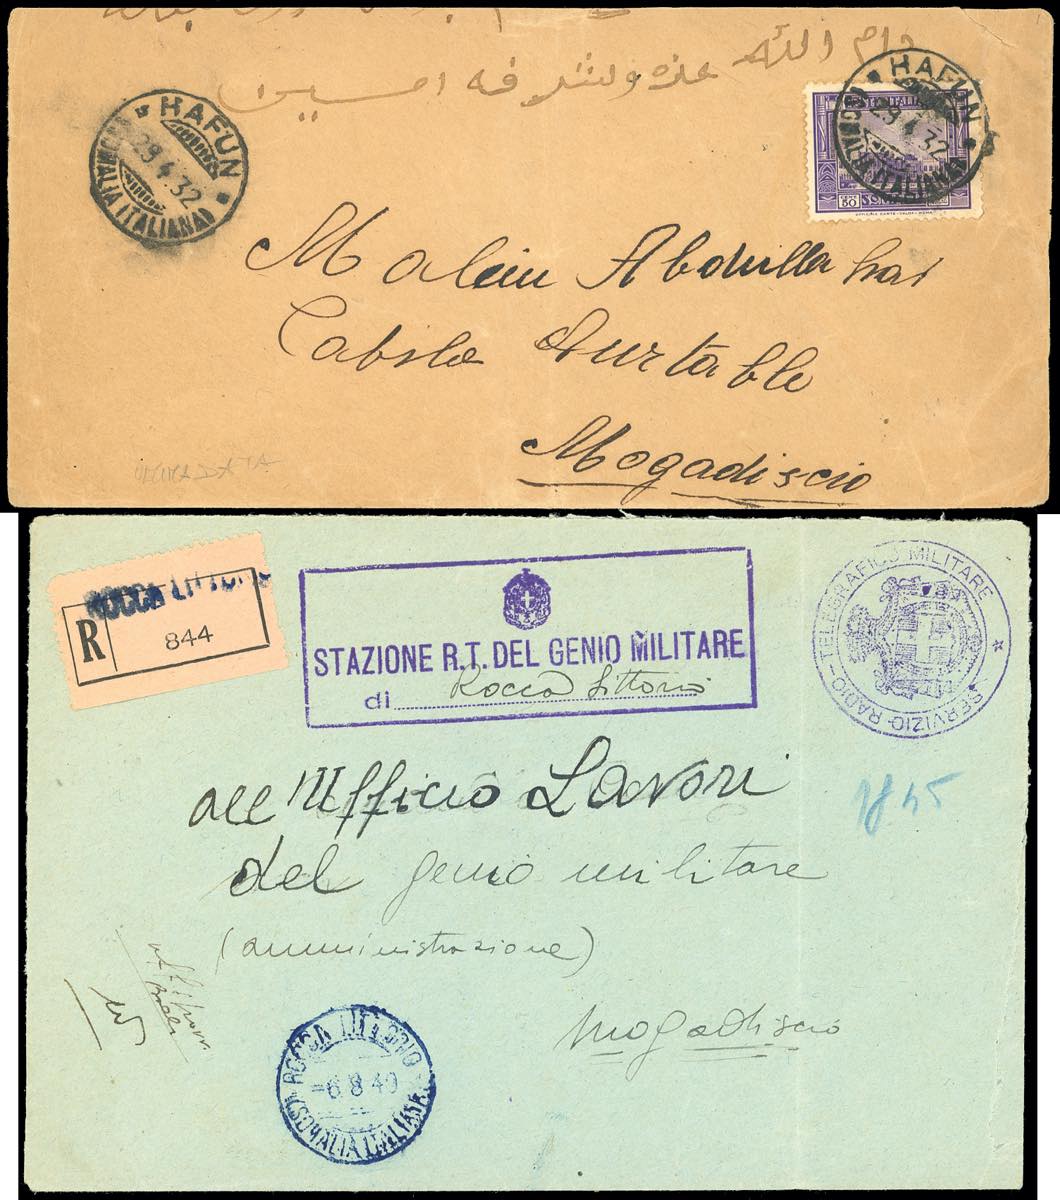 دام الله عزه وشرفه امسين
HAFUN
29.4.32
(SOMALIA ITALIANA)
HAFUN
29.4.32
(SOMALIA ITALIANA)
CENT
50
UFFICINA CARTE-VALORI-ROMA
Malein Abdulla
Cabila
Mogadiscio
ULTIMA DATA
ROCCA LITTORIO
R
844
STAZIONE R.T. DEL GENIO MILITARE
di Rocca Littorio
SERVIZIO RADIO-TELEGRAFICO MILITARE
all'Ufficio Lavori
del genio militare
(amministrazione)
Mogadiscio
ROCCA LITTORIO
=6.8.40
(SOMALIA ITALIANA)